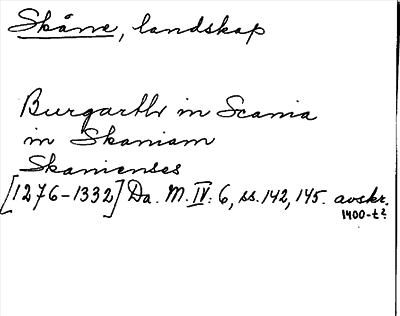 Skåne, landskap
Burgarthr in Scania
in Skaniam
Skanienses
[1276-1332] Da. M. IV: 6, ss. 142, 145. avskr.
1400-t?